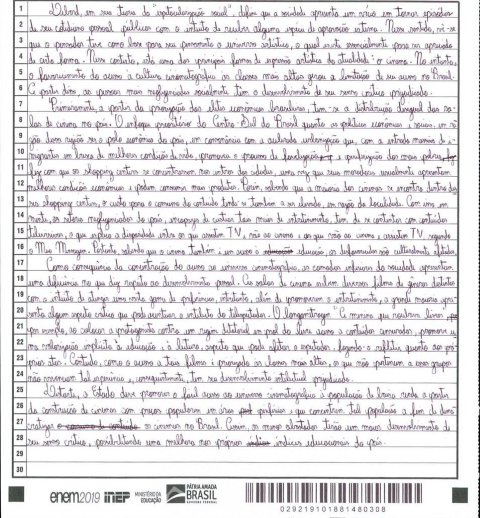 1 Debord, em sua teoria da "espetacularização social", define que a sociedade apresenta um vício em tornar episódios
2 de seu cotidiano pessoal públicos com o intuito de receber alguma espécie de aprovação externa. Nesse sentido, vê-se
3 que o pensador teve como base para seu pensamento o universo artístico, o qual vive anualmente para ser aprovado
4 de certa forma. Nesse contexto, está uma das principais formas de expressão artística da atualidade: o cinema. No entanto,
5 o favorecimento do acesso a cultura cinematográfica às classes mais altas gerou a limitação de seu acesso no Brasil.
6 E partir disso, as pessoas mais negligenciadas socialmente têm o desenvolvimento de seu senso crítico prejudicado.
7 Primeiramente, a partir da priorização das elites econômicas brasileiras, tem-se a distribuição desigual das sa-
8 las de cinema no país. O enfoque prioritário do Centro-Sul do Brasil quanto às políticas econômicas e sociais, em ra-
9 zão dessa região ser o polo econômico do país, em consonância com a acelerada urbanização que, com a entrada massiva de i-
10 migrantes em busca de melhores condições de vida, promoveu o processo de e a periferização dos mais pobres,
11 fez com que os shopping centers se concentrassem nos centros das cidades, uma vez que seus moradores usualmente apresentam
12 melhores condições econômicas e podem consumir mais produtos. Porém, sabendo que a maioria dos cinemas se encontra dentro des-
13 ses shopping centers, o custo para o consumo do conteúdo tende a também a ser elevado, em razão da localidade. Com isso em
14 mente, os setores negligenciados do país, incapazes de custear tais meios de entretenimento, têm de se contentar com conteúdos
15 televisivos, o que explica a disparidade entre os que assistem TV, não ao cinema e os que vão ao cinema e assistem TV, segundo
16 o Meio Mensagem. Portanto, sabendo que o cinema também é um acesso à educação, os desfavorecidos são culturalmente afetados.
17 Como consequência da concentração do acesso ao universo cinematográfico, as camadas inferiores da sociedade apresentam
18 uma deficiência no que diz respeito ao desenvolvimento pessoal. As salas de cinema exibem diversos filmes de gêneros distintos
19 com o intuito de atingir uma vasta gama de preferências, entretanto, além de promoverem o entretenimento, a grande maioria apre-
20 senta algum aspecto crítico que pode acentuar o intelecto do telespectador. O longametragem "A menina que roubava livros",
21 por exemplo, ao colocar a protagonista contra um regime ditatorial em prol do livre acesso a conteúdos censurados, promove u-
22 ma valorização implícita à educação e à leitura, aspecto que pode afetar o espectador, levando-o a refletir quanto aos pró-
23 prios atos. Contudo, como o acesso a tais filmes é priorizado às classes mais altas, os que não pertencem a esses grupos
24 não vivenciam tal experiência e, consequentemente, têm seu desenvolvimento intelectual prejudicado.
25 Destarte, o Estado deve promover o fácil acesso ao universo cinematográfico à população de baixa renda a partir
26 da construção de cinemas com preços populares em áreas periféricas e que concentrem tal população a fim de demo-
27 cratizar os cinemas no Brasil. Assim, os menos abastados terão um maior desenvolvimento de
28 seu senso crítico, possibilitando uma melhora nos próprios índices educacionais do país.
29
30
enem2019 inep MINISTÉRIO DA EDUCAÇÃO PÁTRIA AMADA BRASIL GOVERNO FEDERAL
029219101881480308